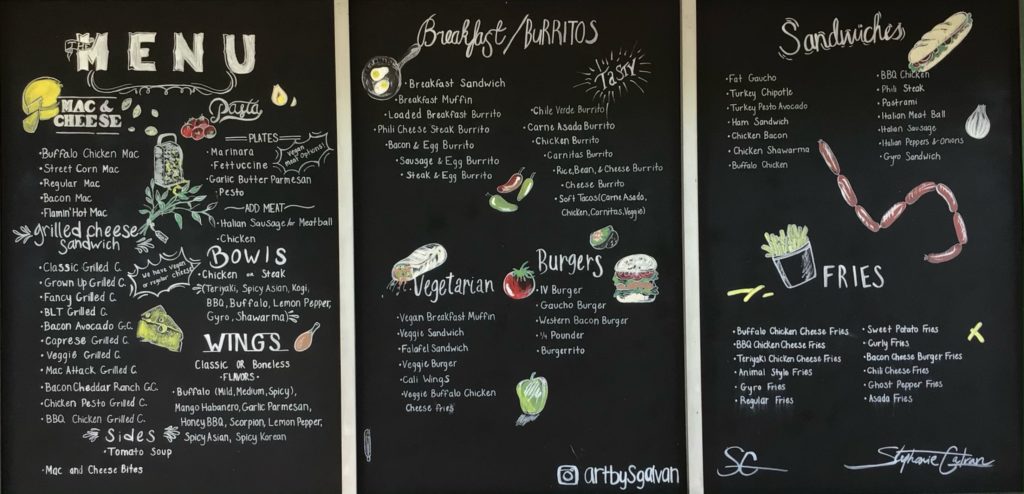 The MENU
MAC &
CHEESE
• Buffalo Chicken Mac
• Street Corn Mac
• Regular Mac
• Bacon Mac
• Flamin' Hot Mac
grilled cheese
sandwich
• Classic Grilled C.
• Grown Up Grilled C.
• Fancy Grilled C.
• BLT Grilled C.
• Bacon Avocado G.C.
• Caprese Grilled C.
• Veggie Grilled C.
• Mac Attack Grilled C.
• Bacon Cheddar Ranch G.C.
• Chicken Pesto Grilled C.
• BBQ. Chicken Grilled C.
we have Vegan
or regular cheese!
Sides
• Tomato Soup
• Mac and Cheese Bites
Pasta
PLATES
• Marinara
• Fettuccine
• Garlic Butter Parmesan
• Pesto
Vegan
meat options!
ADD MEAT
• Italian Sausage or Meatball
• Chicken
Bowls
Chicken or Steak
(Teriyaki, Spicy Asian, Kogi,
BBQ, Buffalo, Lemon Pepper,
Gyro, Shawarma)
WINGS
Classic OR Boneless
• FLAVORS •
• Buffalo (Mild, Medium, Spicy),
Mango Habanero, Garlic Parmesan,
Honey BBQ, Scorpion, Lemon Pepper,
Spicy Asian, Spicy Korean
Breakfast/BURRITOS
TASTY
• Breakfast Sandwich
• Breakfast Muffin
• Loaded Breakfast Burrito
• Phili Cheese Steak Burrito
• Bacon & Egg Burrito
• Sausage & Egg Burrito
• Steak & Egg Burrito
• Chile Verde Burrito
• Carne Asada Burrito
• Chicken Burrito
• Carnitas Burrito
• Rice, Bean, & Cheese Burrito
• Cheese Burrito
• Soft Tacos (Carne Asado,
Chicken, Cornitas, Veggie)
Vegetarian
• Vegan Breakfast Muffin
• Veggie Sandwich
• Falafel Sandwich
• Veggie Burger
• Cali Wings
• Veggie Buffalo Chicken
Cheese fries
Burgers
• IV Burger
• Gaucho Burger
• Western Bacon Burger
• ¼ Pounder
• Burgerrito
artbySgalvan
Sandwiches
• Fat Gaucho
• Turkey Chipotle
• Turkey Pesto Avocado
• Ham Sandwich
• Chicken Bacon
• Chicken Shawarma
• Buffalo Chicken
• BBQ Chicken
• Phili Steak
• Pastrami
• Italian Meat Ball
• Italian Sausage
• Italian Peppers & Onions
• Gyro Sandwich
FRIES
• Buffalo Chicken Cheese Fries
• BBQ Chicken Cheese Fries
• Teriyaki Chicken Cheese Fries
• Animal Style Fries
• Gyro Fries
• Regular Fries
• Sweet Potato Fries
• Curly Fries
• Bacon Cheese Burger Fries
• Chili Cheese Fries
• Ghost Pepper Fries
• Asada Fries
SG
Stephanie Galvan